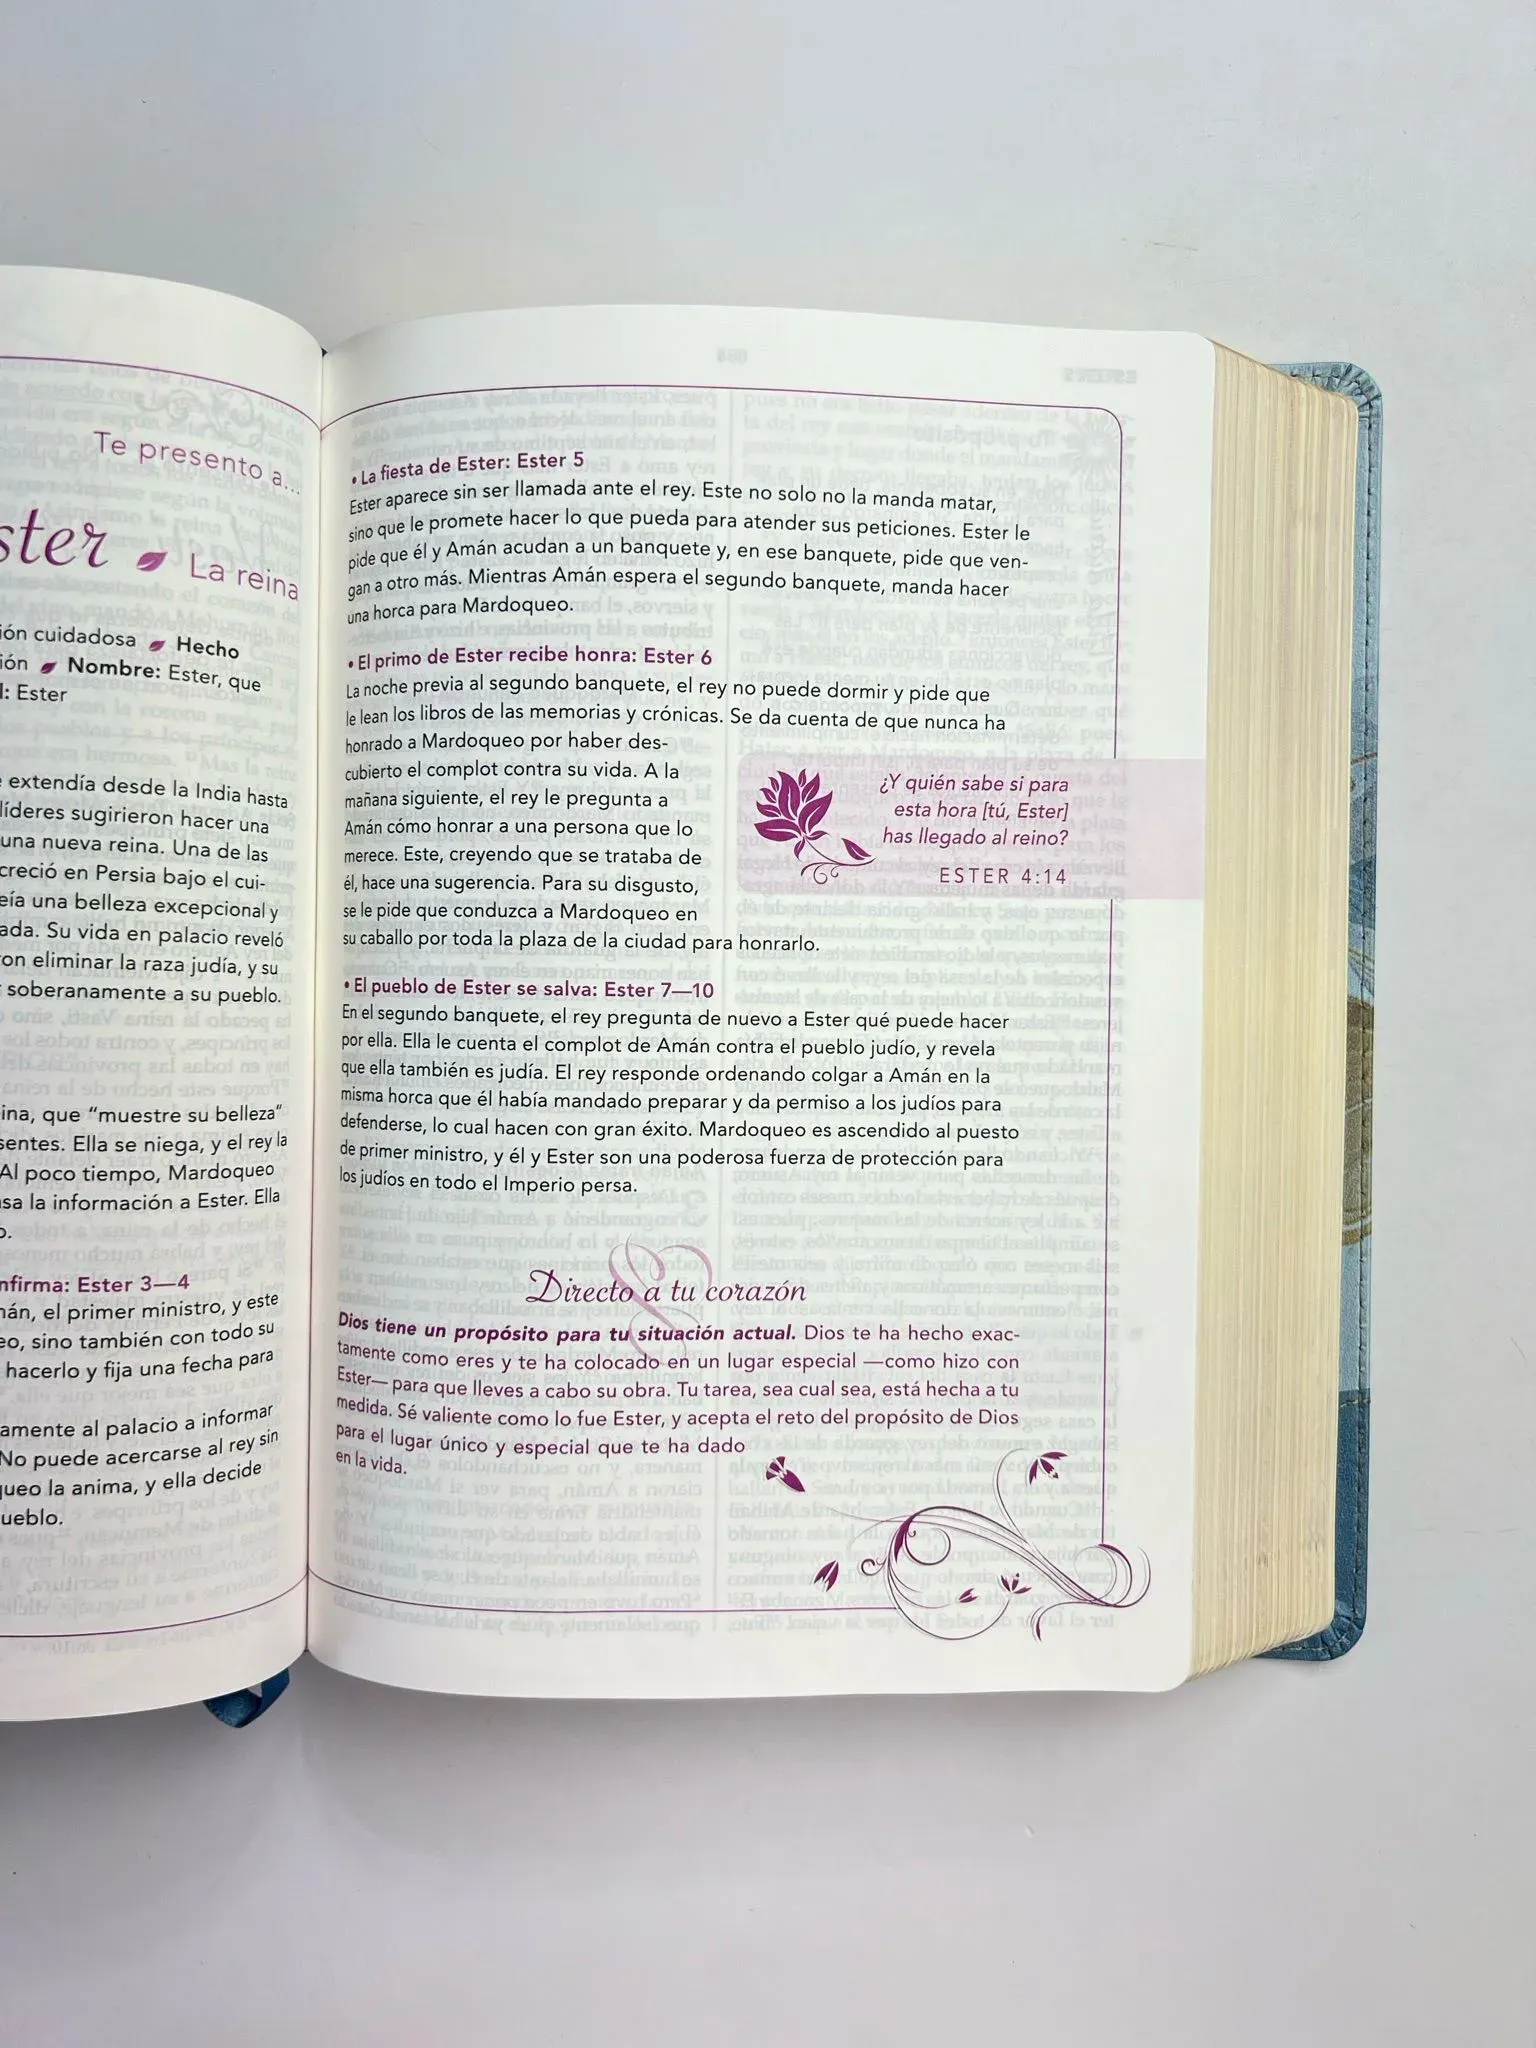 Te presento a...
ster La reina
ión cuidadosa Hecho
ión Nombre: Ester, que
l: Ester
extendía desde la India hasta
líderes sugirieron hacer una
una nueva reina. Una de las
creció en Persia bajo el cui-
eía una belleza excepcional y
ada. Su vida en palacio reveló
ron eliminar la raza judía, y su
soberanamente a su pueblo.
ina, que “muestre su belleza”
sentes. Ella se niega, y el rey la
Al poco tiempo, Mardoqueo
sa la información a Ester. Ella
o.
nfirma: Ester 3—4
mán, el primer ministro, y este
eo, sino también con todo su
hacerlo y fija una fecha para
amente al palacio a informar
No puede acercarse al rey sin
queo la anima, y ella decide
ueblo.
• La fiesta de Ester: Ester 5
Ester aparece sin ser llamada ante el rey. Este no solo no la manda matar,
sino que le promete hacer lo que pueda para atender sus peticiones. Ester le
pide que él y Amán acudan a un banquete y, en ese banquete, pide que ven-
gan a otro más. Mientras Amán espera el segundo banquete, manda hacer
una horca para Mardoqueo.
• El primo de Ester recibe honra: Ester 6
La noche previa al segundo banquete, el rey no puede dormir y pide que
le lean los libros de las memorias y crónicas. Se da cuenta de que nunca ha
honrado a Mardoqueo por haber des-
cubierto el complot contra su vida. A la
mañana siguiente, el rey le pregunta a
Amán cómo honrar a una persona que lo
merece. Este, creyendo que se trataba de
él, hace una sugerencia. Para su disgusto,
se le pide que conduzca a Mardoqueo en
su caballo por toda la plaza de la ciudad para honrarlo.
¿Y quién sabe si para
esta hora [tú, Ester]
has llegado al reino?
ESTER 4:14
• El pueblo de Ester se salva: Ester 7—10
En el segundo banquete, el rey pregunta de nuevo a Ester qué puede hacer
por ella. Ella le cuenta el complot de Amán contra el pueblo judío, y revela
que ella también es judía. El rey responde ordenando colgar a Amán en la
misma horca que él había mandado preparar y da permiso a los judíos para
defenderse, lo cual hacen con gran éxito. Mardoqueo es ascendido al puesto
de primer ministro, y él y Ester son una poderosa fuerza de protección para
los judíos en todo el Imperio persa.
Directo a tu corazón
Dios tiene un propósito para tu situación actual. Dios te ha hecho exac-
tamente como eres y te ha colocado en un lugar especial —como hizo con
Ester— para que lleves a cabo su obra. Tu tarea, sea cual sea, está hecha a tu
medida. Sé valiente como lo fue Ester, y acepta el reto del propósito de Dios
para el lugar único y especial que te ha dado
en la vida.